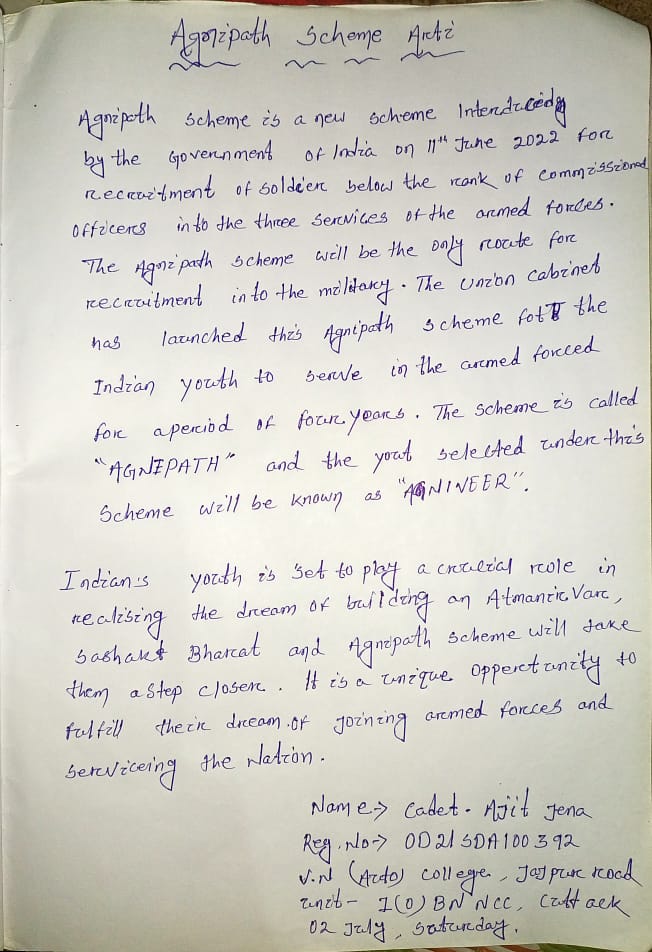 Agnipath Scheme Arti
Agnipath scheme is a new scheme Interducedg
by the Government of India on 11th June 2022 for
recruitment of soldier below the rank of commissioned
officers into the three services of the armed forces.
The Agnipath scheme will be the only route for
recruitment into the military. The Union cabinet
has launched this Agnipath scheme for the
Indian youth to serve in the armed forced
for a periood of four years. The scheme is called
"AGNIPATH" and the yout selected under this
Scheme will be known as "AGNINEER".
Indian's youth is set to play a crucial role in
realising the dream of building an Atmanir Var,
Sashakt Bharat and Agnipath scheme will take
them a step closer. It is a unique oppertunity to
fulfill their dream of joining armed forces and
serviceing the Nation.
Name → Cadet. Ajit Jena
Reg. No → OD21SDA100392
V.N (Auto) college, Jajpur road
unit - 1(O) BN NCC, Cuttack
02 July, Saturday.